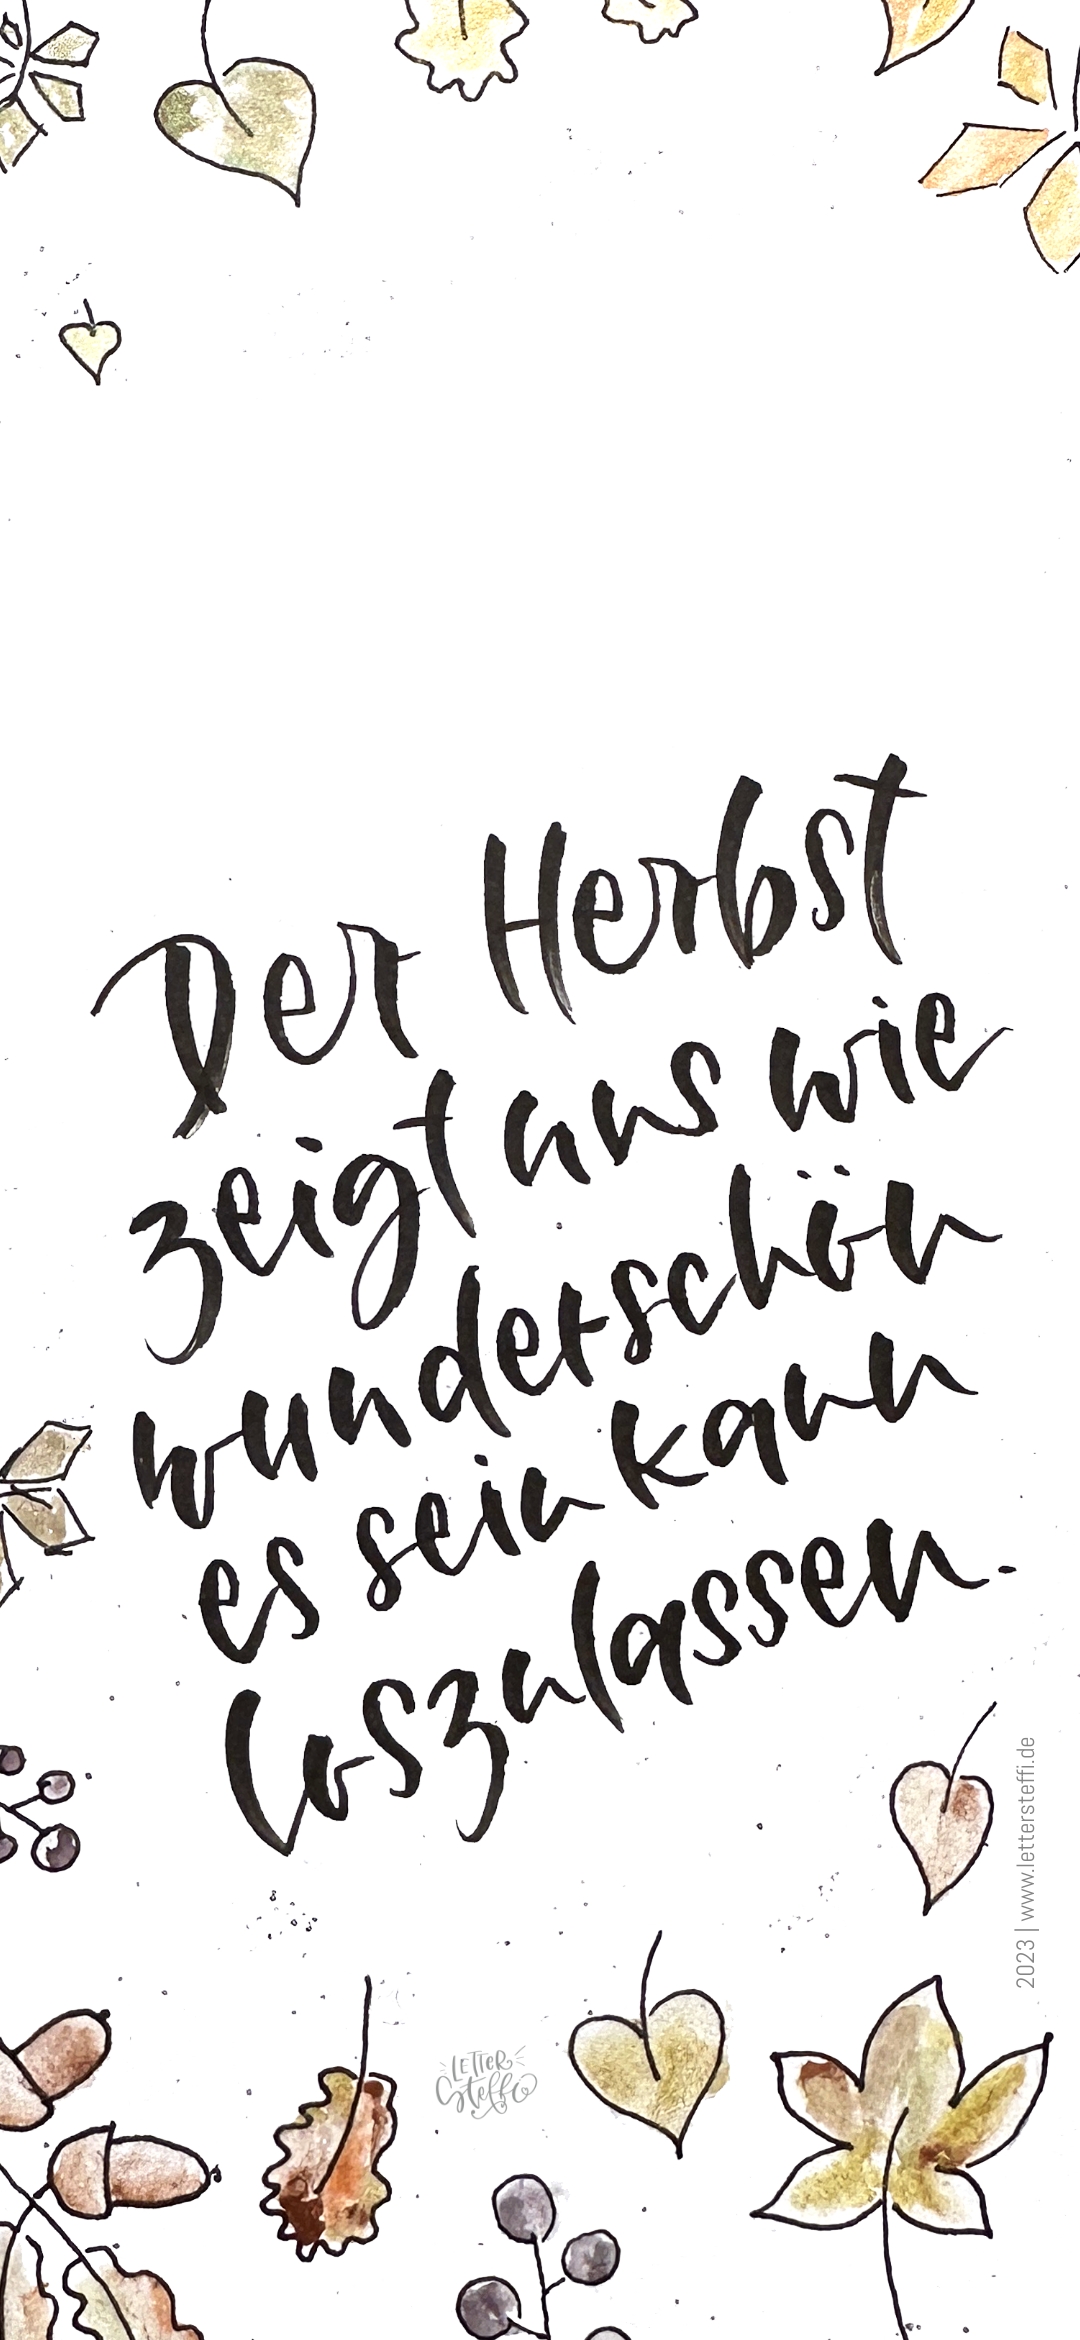 Der Herbst
zeigt uns wie
wunderschön
es sein kann
loszulassen.
2023 | www.lettersteffi.de
LETTER
Steffi